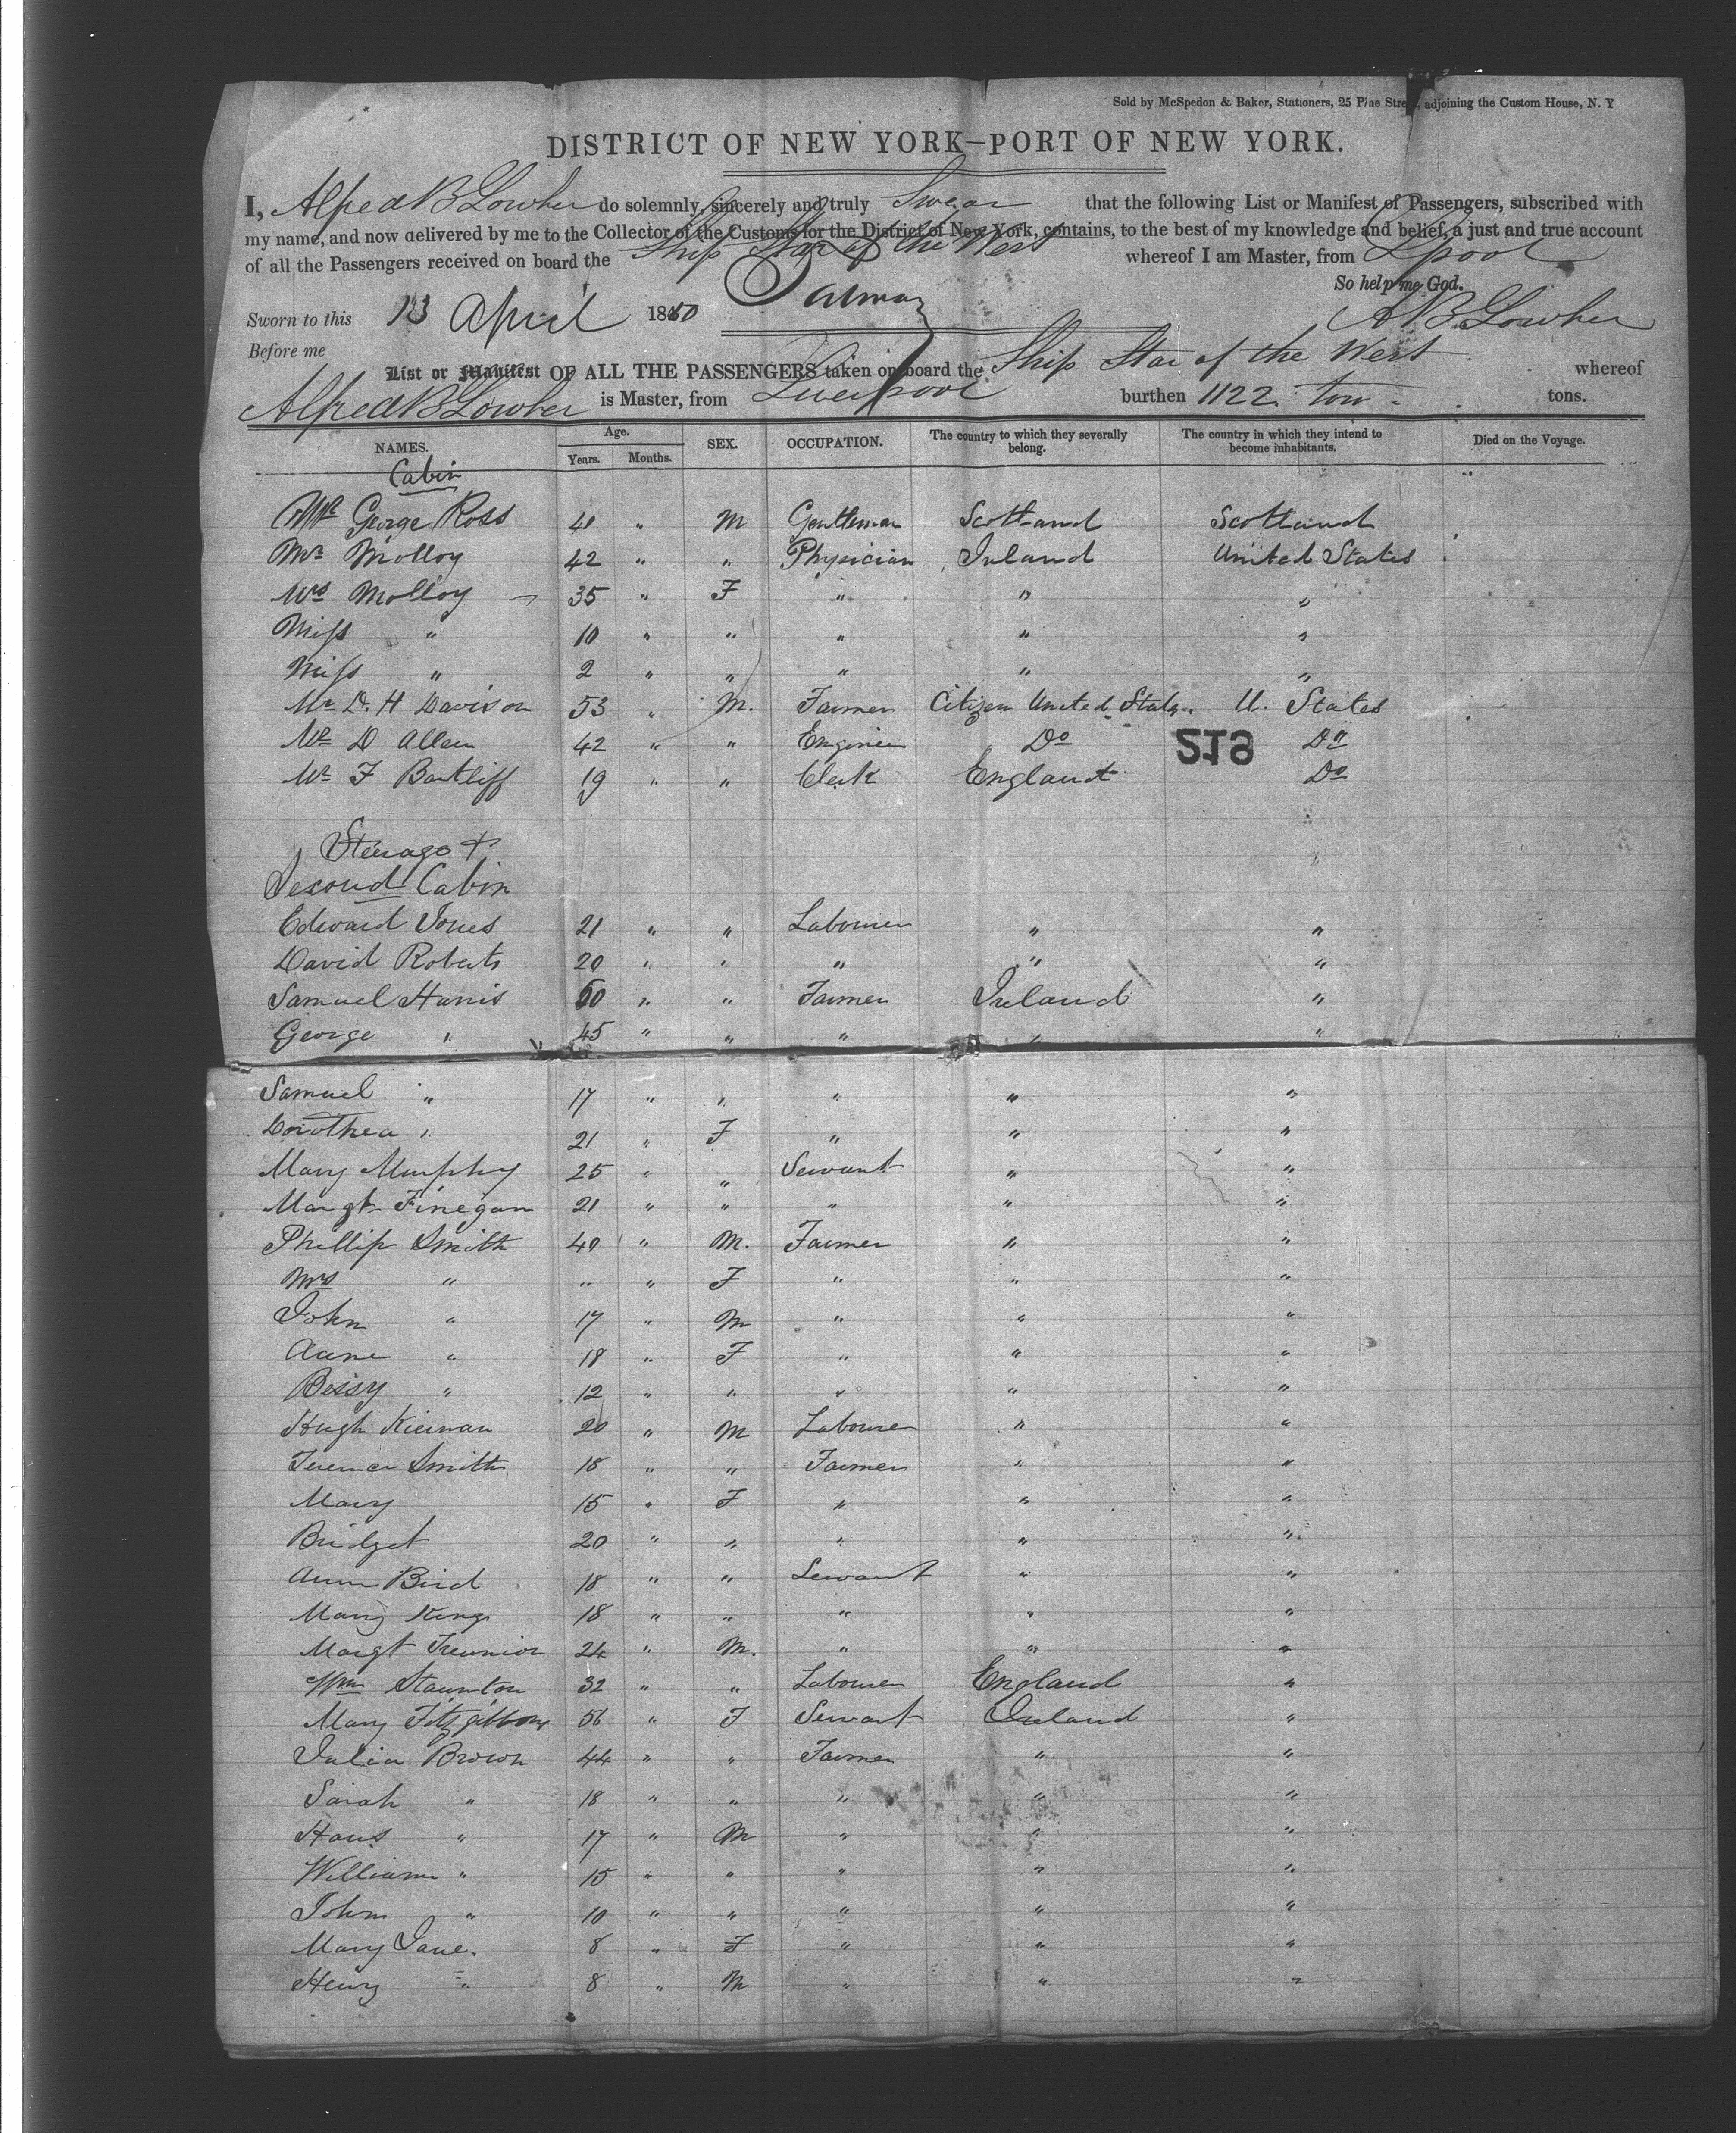 Sold by McSpedon & Baker, Stationers, 25 Pine Street, adjoining the Custom House, N. Y
DISTRICT OF NEW YORK—PORT OF NEW YORK.
I, Alfred B Lowber do solemnly, sincerely and truly Swear that the following List or Manifest of Passengers, subscribed with
my name, and now delivered by me to the Collector of the Customs for the District of New York, contains, to the best of my knowledge and belief, a just and true account
of all the Passengers received on board the Ship Star of the West whereof I am Master, from Lpool
So help me God.
Sworn to this 13 April 1850 A B. Lowber
Before me
List or Manifest OF ALL THE PASSENGERS taken on board the Ship Star of the West whereof
Alfred B Lowber is Master, from Liverpool burthen 1122 tons.
NAMES. Age. Years. Months. SEX. OCCUPATION. The country to which they severally belong. The country in which they intend to become inhabitants. Died on the Voyage.
Cabin
Mr George Ross 41 " M Gentleman Scotland Scotland
Mr Molloy 42 " " Physician Ireland United States
Mrs Molloy 35 " F " " "
Miss " 10 " " " " "
Miss " 2 " " " " "
Mr D. H Davison 53 " M. Farmer Citizen United States. U. States
Mr D Allen 42 " " Engineer Do Do
218
Mr F Bartliff 19 " " Clerk England Do
Steerage &
Second Cabin
Edward Jones 21 " " Labourer " "
David Roberts 20 " " " " "
Samuel Harris 50 " " Farmer Ireland "
George " 45 " " " " "
Samuel " 17 " " " " "
Dorothea " 21 " F " " "
Mary Murphy 25 " " Servant " "
Margt Finegan 21 " " " " "
Phillip Smith 40 " M. Farmer " "
Mrs " " " F " " "
John " 17 " M " " "
Anne " 18 " F " " "
Bessy " 12 " " " " "
Hugh Kiernan 20 " M Labourer " "
Terence Smith 18 " " Farmer " "
Mary 15 " F " " "
Bridget 20 " " " " "
Ann Bird 18 " " Servant " "
Mary King 18 " " " " "
Margt 24 " M. " " "
Wm Staunton 32 " " Labourer England "
Mary Fitzgibbons 56 " F Servant Ireland "
Julia Brown 44 " " Farmer " "
Sarah " 18 " " " " "
Hans " 17 " M " " "
William " 15 " " " " "
John " 10 " " " " "
Mary Jane. 8 " F " " "
Henry " 8 " M " " "